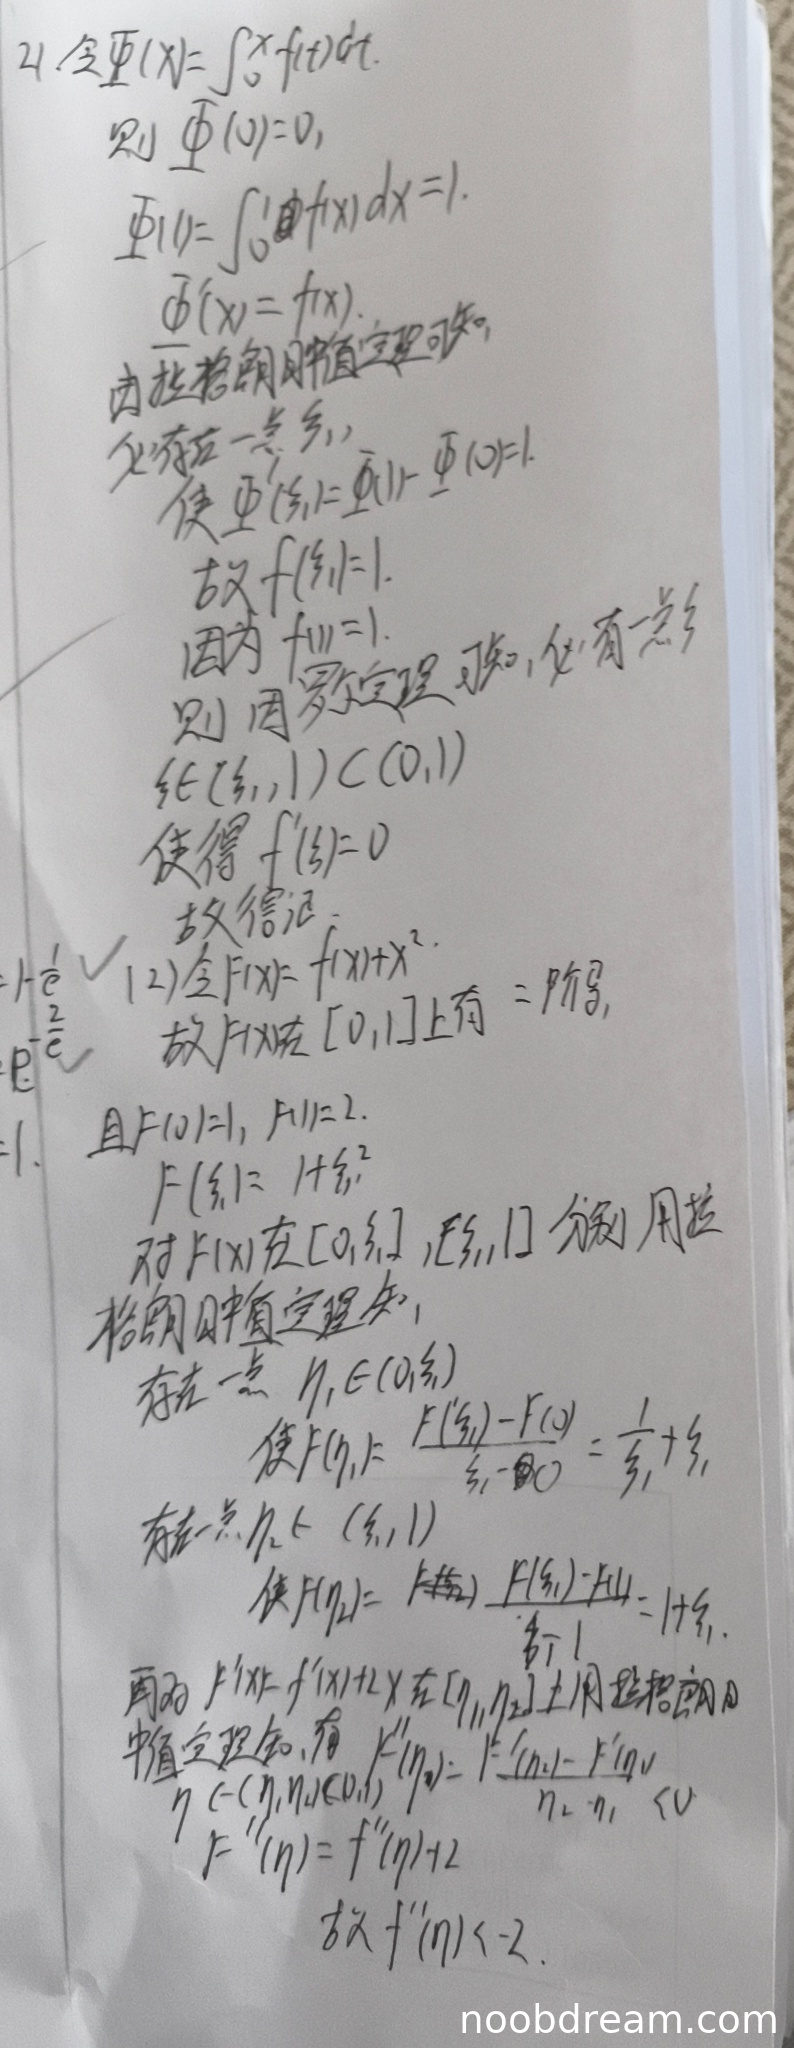 21. 令Φ(x)=∫₀ˣf(t)dt.
则 Φ(0)=0,
Φ(1)=∫₀¹f(x)dx=1.
Φ'(x)=f(x).
由拉格朗日中值定理可知,
必存在一点ξ₁,
使Φ'(ξ₁)=Φ(1)-Φ(0)=1.
故f(ξ₁)=1.
因为 f(1)=1.
则 由罗尔定理可知,必有一点ξ
ξ∈(ξ₁,1)⊂(0,1)
使得 f'(ξ)=0
故得证.
=1-1/e ✓
(2)令F(x)=f(x)+x².
故F(x)在[0,1]上有二阶导,
e^(-2/e) ✓
=1.
且F(0)=1, F(1)=2.
F(ξ₁)=1+ξ₁²
对F(x)在[0,ξ₁],[ξ₁,1]分别用拉
格朗日中值定理知,
存在一点 η₁∈(0,ξ₁)
使F'(η₁)=(F(ξ₁)-F(0))/(ξ₁-0)=1/ξ₁+ξ₁
存在一点η₂∈(ξ₁,1)
使F'(η₂)=(F(ξ₁)-F(1))/(ξ₁-1)=1+ξ₁.
再对F'(x)=f'(x)+2x在[η₁,η₂]上用拉格朗日
中值定理知,有 F''(η)=(F'(η₂)-F'(η₁))/(η₂-η₁)<0
η∈(η₁,η₂)⊂(0,1)
F''(η)=f''(η)+2
故f''(η)<-2.
noobdream.com